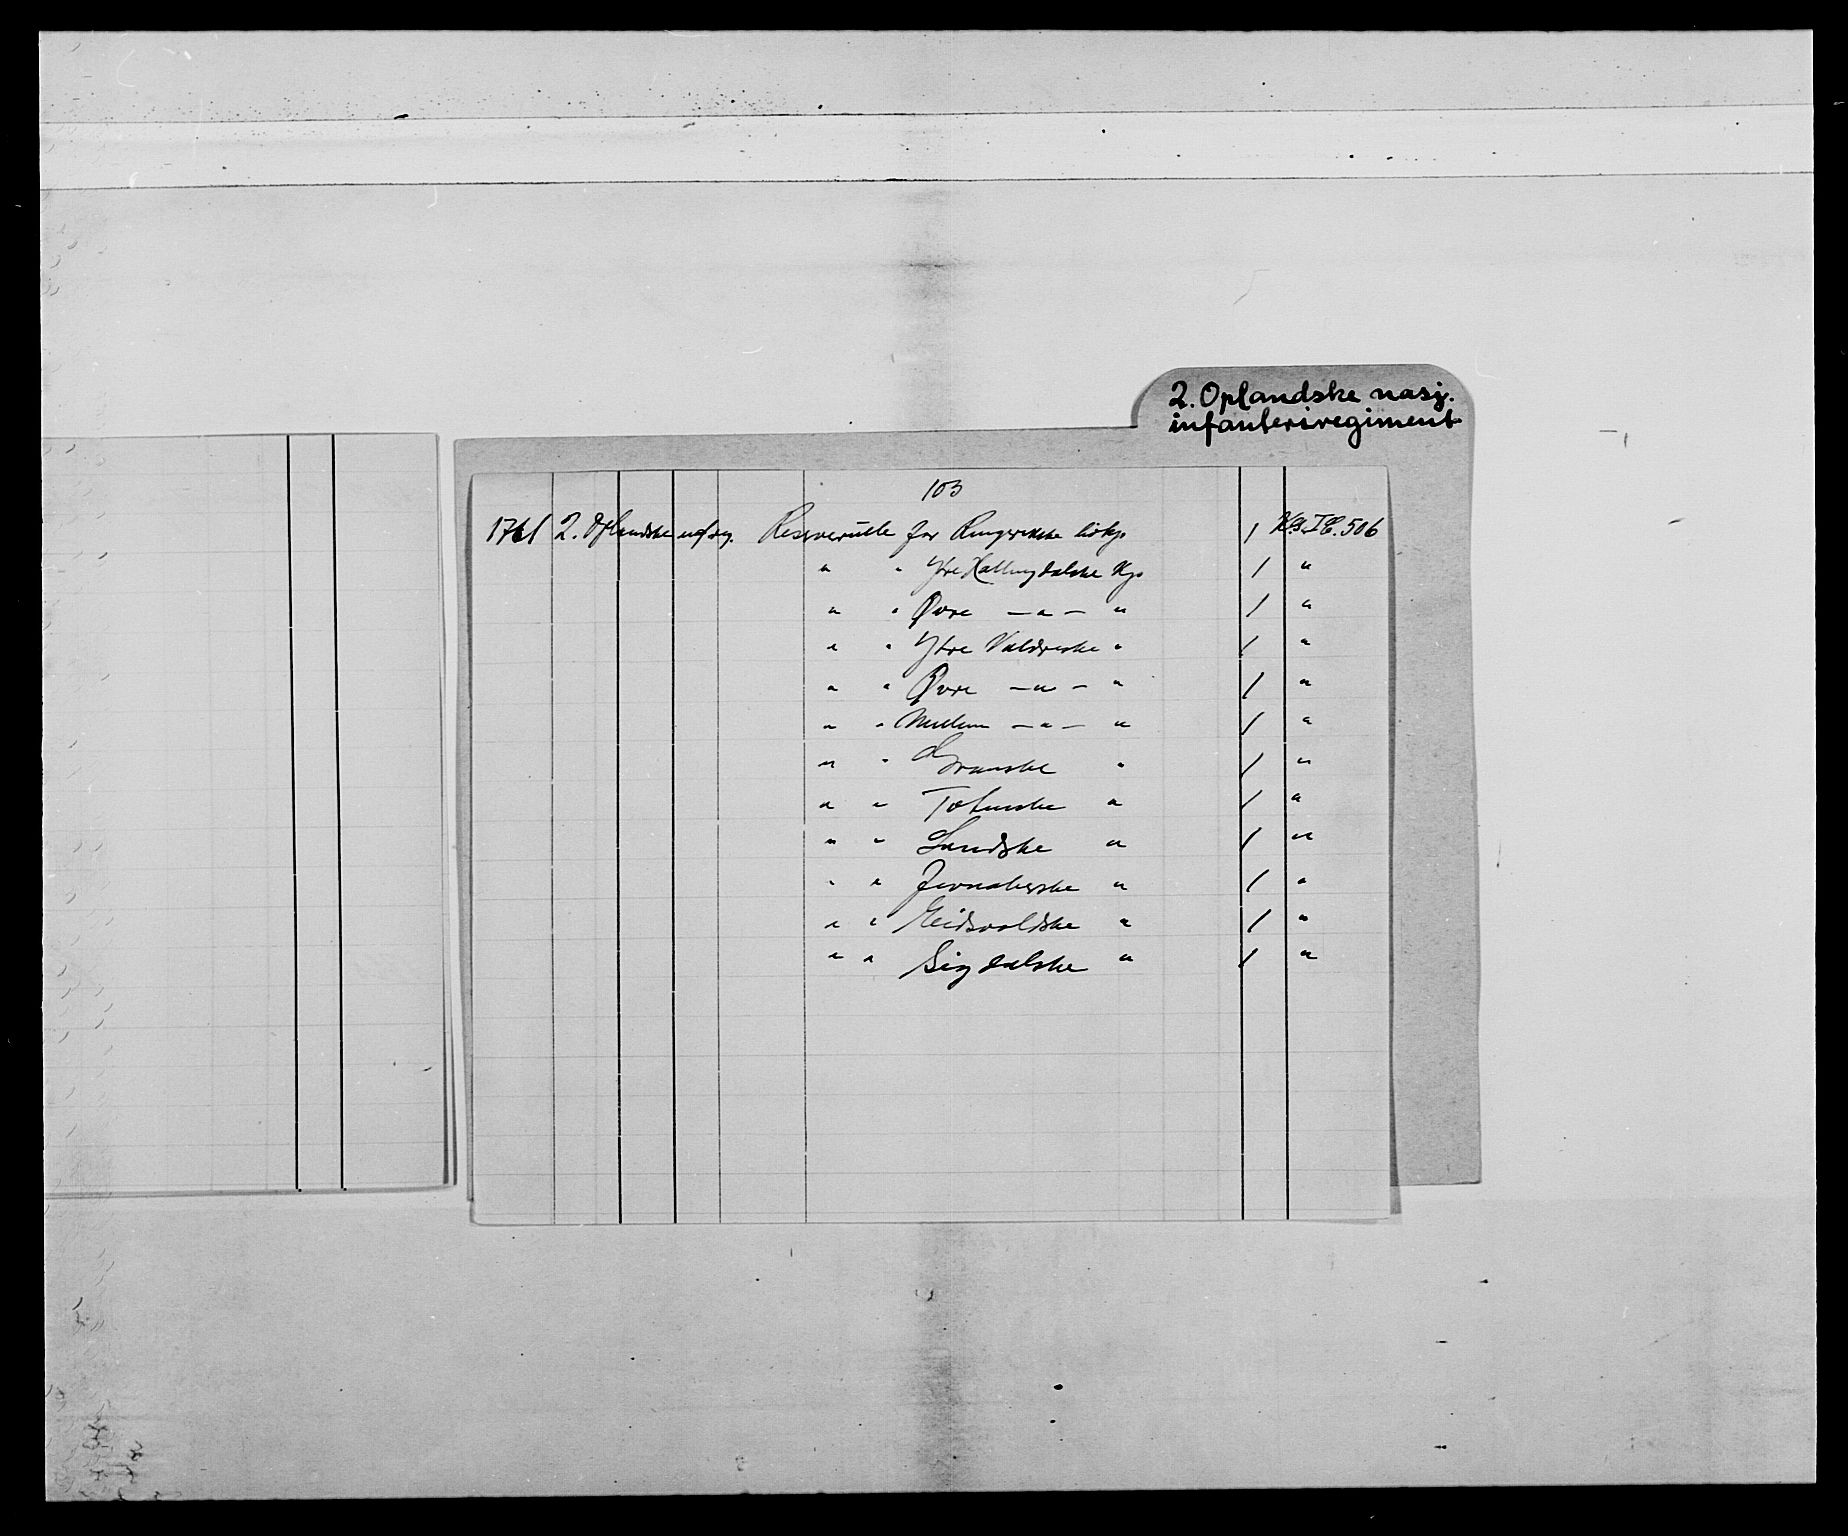 2. Oplandske nasj.
infanteriregiment
103
1761 2. Oplandske inf.reg. Reserverulle for Ringerikske livkp. 1 Kg. I C. 506
" " Ytre Hallingdalske Kp. 1 "
" " Øvre — " — " 1 "
" " Ytre Valdreske " 1 "
" " Øvre — " — " 1 "
" " Mellem — " — " 1 "
" " Granske " 1 "
" " Totenske " 1 "
" " Landske " 1 "
" " Jevnakerske " 1 "
" " Eidsvoldske " 1 "
" " Sigdalske " 1 "